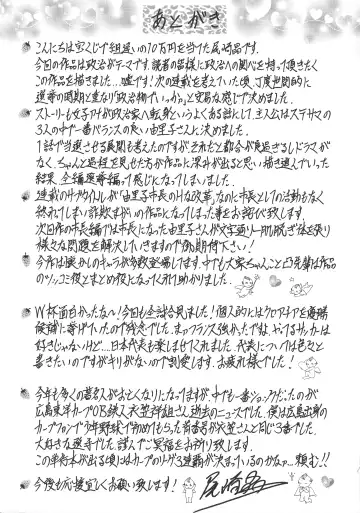 あとがき
こんにちは宝くじで組違いの10万円を当てた尾崎晶です。
今回の作品は政治がテーマです。読者の皆様に政治への関心を持って頂きたく
この作品を描きました…嘘です!次の連載を考えていた頃、丁度世間的に
選挙の時期と重なり「政治物でいっか。」と安易な感じで決めました。
ストーリーも女子アナが政治家へ転身というよくある話にして、主人公はステサマの
3人の中で一番バランスの良い由里子さんに決めました。
1話で当選させる展開も考えたのですがそれだと都合が良過ぎるしドラマが
なく、ちゃんと過程を見せた方が作品に深みが出ると思い描き進んでいった
結果、全編選挙編って感じになってしまいました。
連載のサブタイトルが「由里子市長のHな改革」なのに市長としての活動もなく
終わってしまい詐欺まがいの作品になってしまった事をお詫び致します。
次回作の市長編では市長になった由里子さんが文字通り一肌脱ぎ体を張り
様々な問題を解決していきますので御期待下さい!
今作は懐かしのキャラが多数登場してます。中でも大家ちゃんこと凸兄弟は作品
のツッコミ役とまとめ役になってくれて助かりました。
W杯面白かったな〜!今回も全試合見ました!個人的にはクロアチアを優勝
候補に挙げていたので残念でした。まぁフランス強かったですね。やってるサッカーは
好きじゃないけど…日本代表も楽しませてくれました。代表については色々と
書きたいのですがキリがないので割愛します。お疲れ様でした!
今年も多くの著名人がお亡くなりになってますが、中でも一番ショックだったのが
広島東洋カープOB鉄人衣笠祥雄さん逝去のニュースでした。僕は広島出身の
カープファンで少年野球で初めてもらった背番号が衣笠さんと同じ3番でした。
大好きな選手でした。謹んでご冥福をお祈り致します。
この単行本が出る頃にはカープのリーグ3連覇が決まっているのかなァ…頼む!!
今後も応援宜しくお願い致します!
尾崎晶